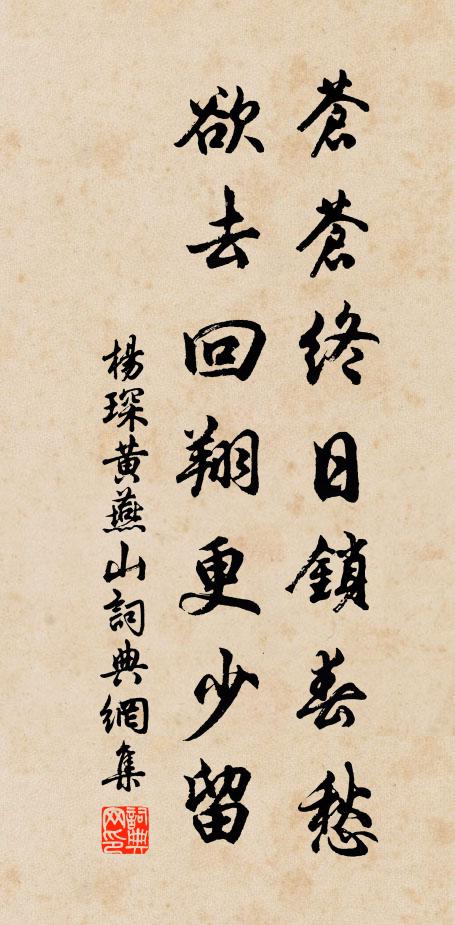 蒼蒼終日鎖春愁
欲去回翔更少留
楊琛黃燕山詞典網集
詞典网印